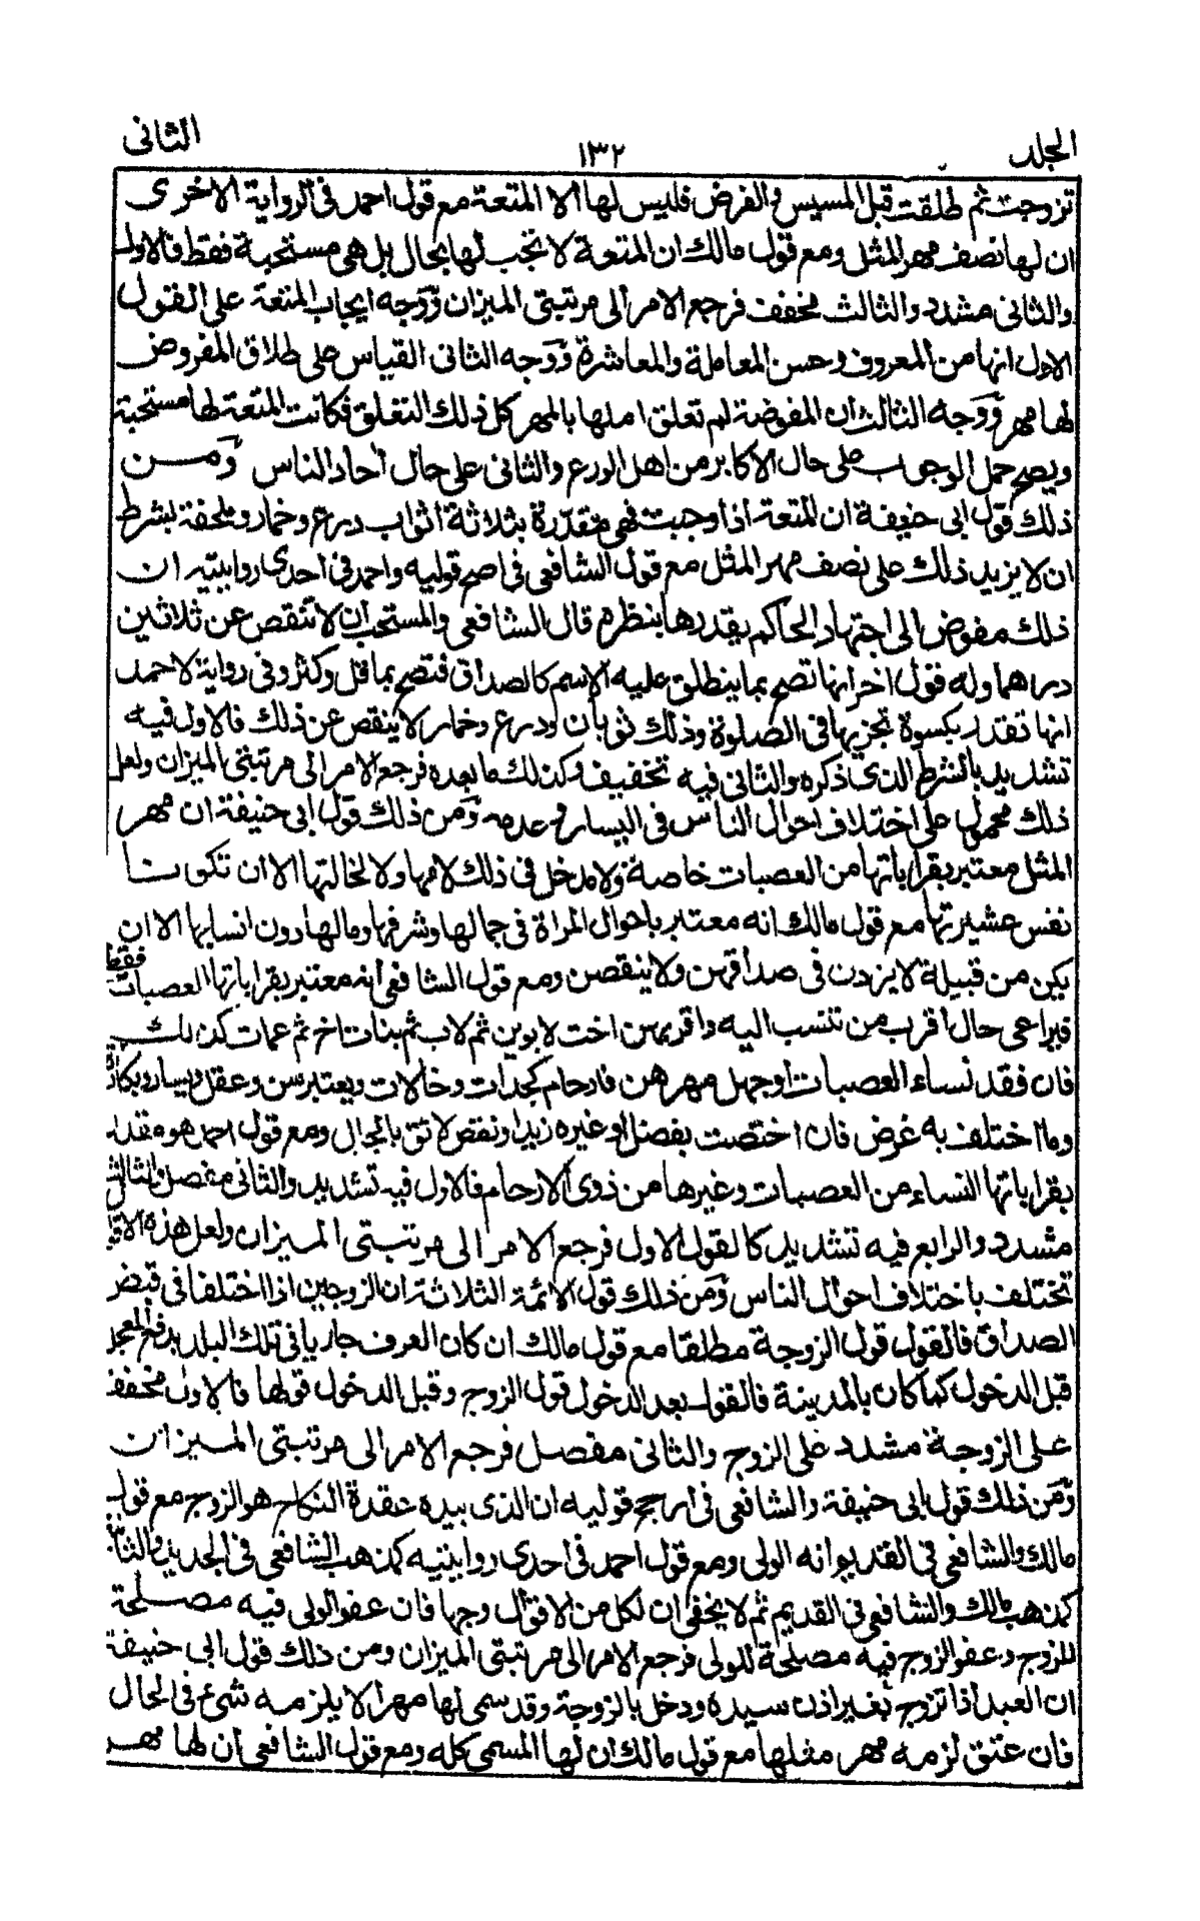 الجلد ١٣٢ الثانى
تزوجت ثم طلقت قبل المسيس والفرض فليس لها الا المتعة مع قول احمد فى الرواية الاخرى
ان لها نصف مهر المثل ومع قول مالك ان المتعة لا تجب لها بحال بل هى مستحبة فقط فالاول
والثانى مشدد والثالث مخفف فرجع الامر الى مرتبتى الميزان ووجه ايجاب المتعة على القول
الاول انها من المعروف وحسن المعاملة والمعاشرة ووجه الثانى القياس على طلاق المفروض
لها مهر ووجه الثالث ان المفوضة لم تعلق املها بالمهر كل ذلك التعلق فكانت المتعة لها مستحبة
ويصح حمل الوجوب على حال الاكابر من اهل الورع والثانى على حال آحاد الناس ومن
ذلك قول ابى حنيفة ان المتعة اذا وجبت فهى مقدرة بثلاثة اثواب درع وخمار وملحفة بشرط
ان لا يزيد ذلك على نصف مهر المثل مع قول الشافعى فى اصح قوليه واحمد فى احدى روايتيه ان
ذلك مفوض الى اجتهاد الحاكم يقدرها بنظره قال الشافعى والمستحب ان لا تنقص عن ثلاثين
درهما وله قول اخر انها تصح بما ينطلق عليه الاسم كالصداق فتصح بما قل وكثر وفى رواية لاحمد
انها تقدر بكسوة تجزيها فى الصلوة وذلك ثوبان ودرع وخمار لا ينقص عن ذلك فالاول فيه
تشديد بالشرط الذى ذكره والثانى فيه تخفيف وكذلك ما بعده فرجع الامر الى مرتبتى الميزان ولعل
ذلك محمول على اختلاف احوال الناس فى اليسار وعدمه ومن ذلك قول ابى حنيفة ان مهر
المثل معتبر بقراباتها من العصبات خاصة ولا مدخل فى ذلك لامها ولا لخالتها الا ان تكونا
نفس عشيرتها مع قول مالك انه معتبر باحوال المراة فى جمالها وشرفها ومالها دون انسابها الا ان
يكن من قبيلة لا يزدن فى صداقهن ولا ينقصن ومع قول الشافعى انه معتبر بقراباتها العصبات فقط
فيراعى حال اقرب من تنسب اليه واقربهن اخت لابوين ثم لاب ثم بنات اخ ثم عمات كذلك
فان فقد نساء العصبات او جهل مهرهن فارحام كجدات وخالات ويعتبر سن وعقل ويسار وبكارة
وما اختلف به غرض فان اختصت بفضل او غيره زيد او نقص لائق بالحال ومع قول احمد هو مقدر
بقراباتها النساء من العصبات وغيرها من ذوى الارحام فالاول فيه تشديد والثانى مفصل والثالث
مشدد والرابع فيه تشديد كالقول الاول فرجع الامر الى مرتبتى الميزان ولعل هذه الاقوال
تختلف باختلاف احوال الناس ومن ذلك قول الائمة الثلاثة ان الزوجين اذا اختلفا فى قبض
الصداق فالقول قول الزوجة مطلقا مع قول مالك ان كان العرف جاريا فى تلك البلد بدفع المعجل
قبل الدخول كما كان بالمدينة فالقول بعد الدخول قول الزوج وقبل الدخول قولها فالاول مخفف
على الزوجة مشدد على الزوج والثانى مفصل فرجع الامر الى مرتبتى الميزان
ومن ذلك قول ابى حنيفة والشافعى فى ارجح قوليه ان الذى بيده عقدة النكاح هو الزوج مع قول
مالك والشافعى فى القديم انه الولى ومع قول احمد فى احدى روايتيه كمذهب الشافعى فى الجديد والثانى
كمذهب مالك والشافعى فى القديم ثم لا يخفى ان لكل من الاقوال وجها فان عفو الولى فيه مصلحة
للزوج وعفو الزوج فيه مصلحة للولى فرجع الامر الى مرتبتى الميزان ومن ذلك قول ابى حنيفة
ان العبد اذا تزوج بغير اذن سيده ودخل بالزوجة وقد سمى لها مهرا لا يلزمه شئ فى الحال
فان عتق لزمه مهر مثلها مع قول مالك ان لها المسمى كله ومع قول الشافعى ان لها مهر